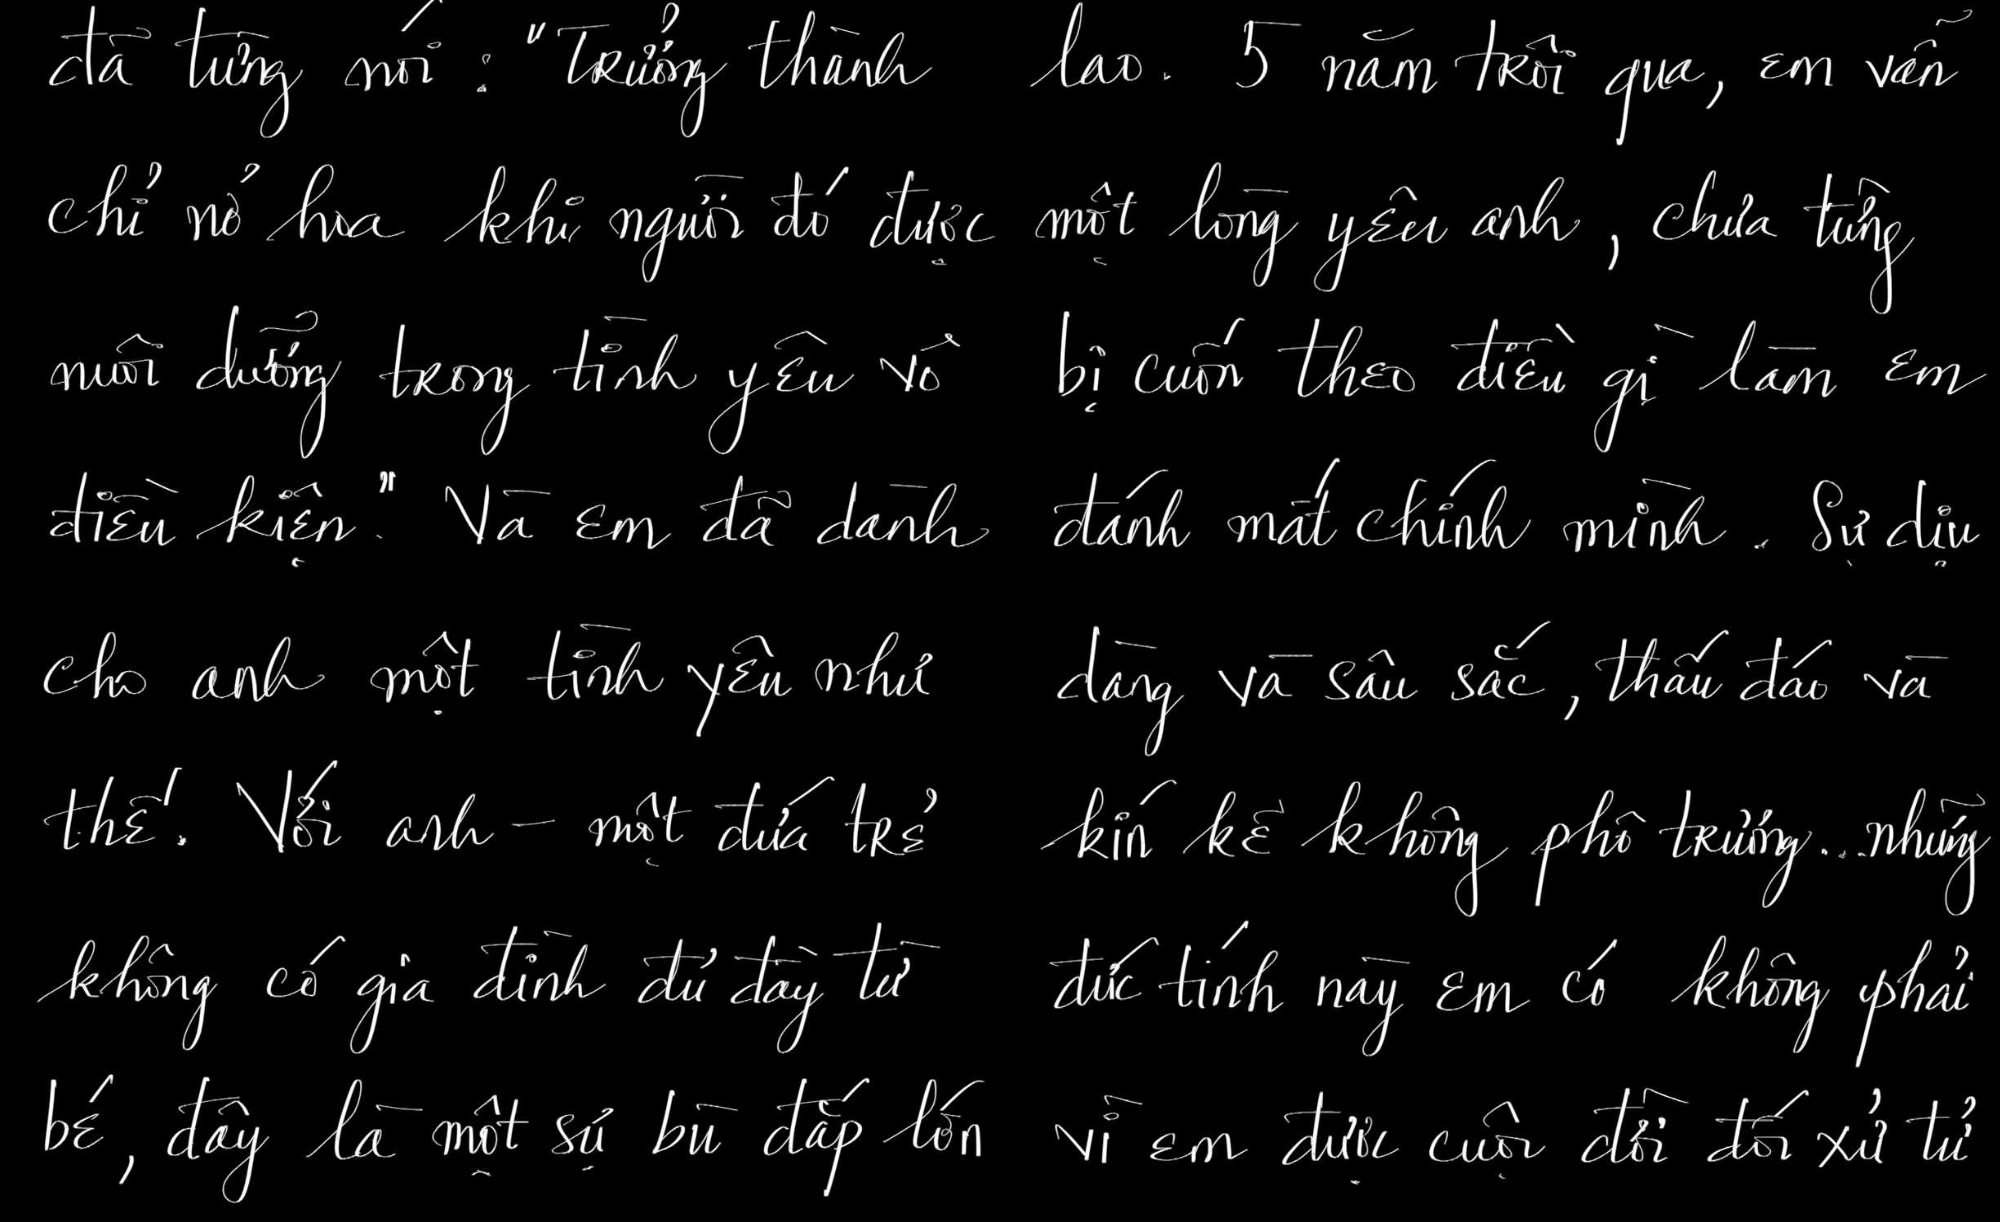 đã từng nói : "Trưởng thành
chỉ nở hoa khi người đó được
nuôi dưỡng trong tình yêu vô
điều kiện." Và em đã dành
cho anh một tình yêu như
thế! Với anh – một đứa trẻ
không có gia đình đủ đầy từ
bé, đây là một sự bù đắp lớn
lao. 5 năm trôi qua, em vẫn
một lòng yêu anh, chưa từng
bị cuốn theo điều gì làm em
đánh mất chính mình. Sự dịu
dàng và sâu sắc, thấu đáo và
kín kẽ không phô trương... những
đức tính này em có không phải
vì em được cuộc đời đối xử tử